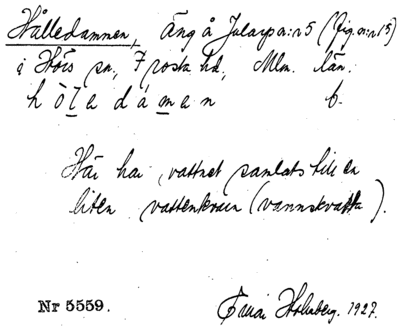 Hålledammen, Äng å Jularp a:r 5 (fig. a:r 15)
i Hörs sn, Frosta hd, Mlm. län.
h ò l e d á m e n f.
Här har vattnet samlats till en
liten vattenkvarn (vannskvatta).
Nr 5559. Holmberg. 1927.